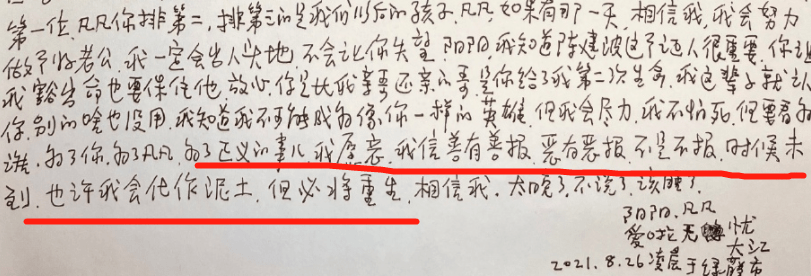 第一位,凡凡你排第二,排第三的是我们以后的孩子.凡凡,如果有那一天,相信我,我会努力
做个好老公.我一定会出人头地,不会让你失望.阳阳,我知道陈建波这个证人很重要,你让
我豁出命也要保住他,放心.你是比我亲哥还亲的哥,是你给了我第二次生命,我这辈子就认
你,别的啥也没用.我知道我不可能成为像你一样的英雄,但我会尽力.我不怕死,但要看为
谁.为了你,为了凡凡,为了正义的事儿,我愿意.我信善有善报,恶有恶报,不是不报,时候未
到.也许我会化作泥土,但必将重生.相信我.太晚了,不说了,该睡了.
阳阳.凡凡
爱吃无忧
大江
2021.8.26凌晨于绿藤市